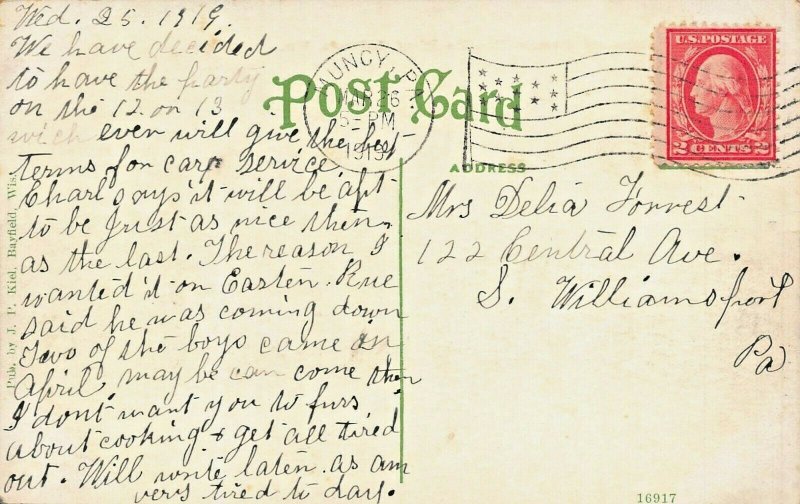 Wed. 25. 1919.
We have decided
to have the party
on the 12 on 13
wich even will give the best
terms for care service.
Charl says it will be apt
to be just as nice then
as the last. The reason I
wanted it on Easter. Rue
said he was coming down
Two of the boys came in
April may be can come then
I dont want you to fuss
about cooking & get all tired
out. Will write later as am
very tired to day.
Pub. by J. P. Kiel, Bayfield, Wis.
Post Card
MUNCY, PA.
MAR 26
5-PM
1919
U.S. POSTAGE
2 CENTS 2
ADDRESS
Mrs Delia Forrest
122 Central Ave.
S. Williamsport
Pa
16917